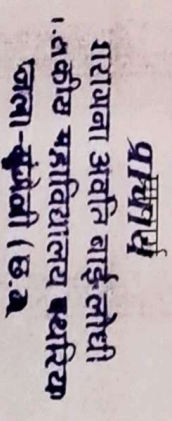 प्राचार्य
रायमना अवंति बाई लोधी
.तकीय महाविद्यालय पथरिया
जिला-मुंगेली (छ.ग